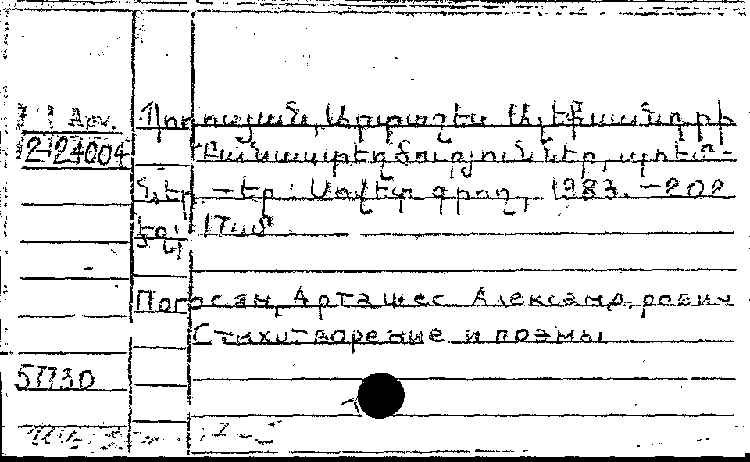 Арм.
2-24004
Պողոսյան, Արտաշես Ալեքսանդրի
Բանաստեղծություններ, պոեմ-
ներ. – Եր.: Սովետ. գրող, 1983. – 202
էջ;
Погосян, Арташес Александрович
Стихотворение и поэмы
51730